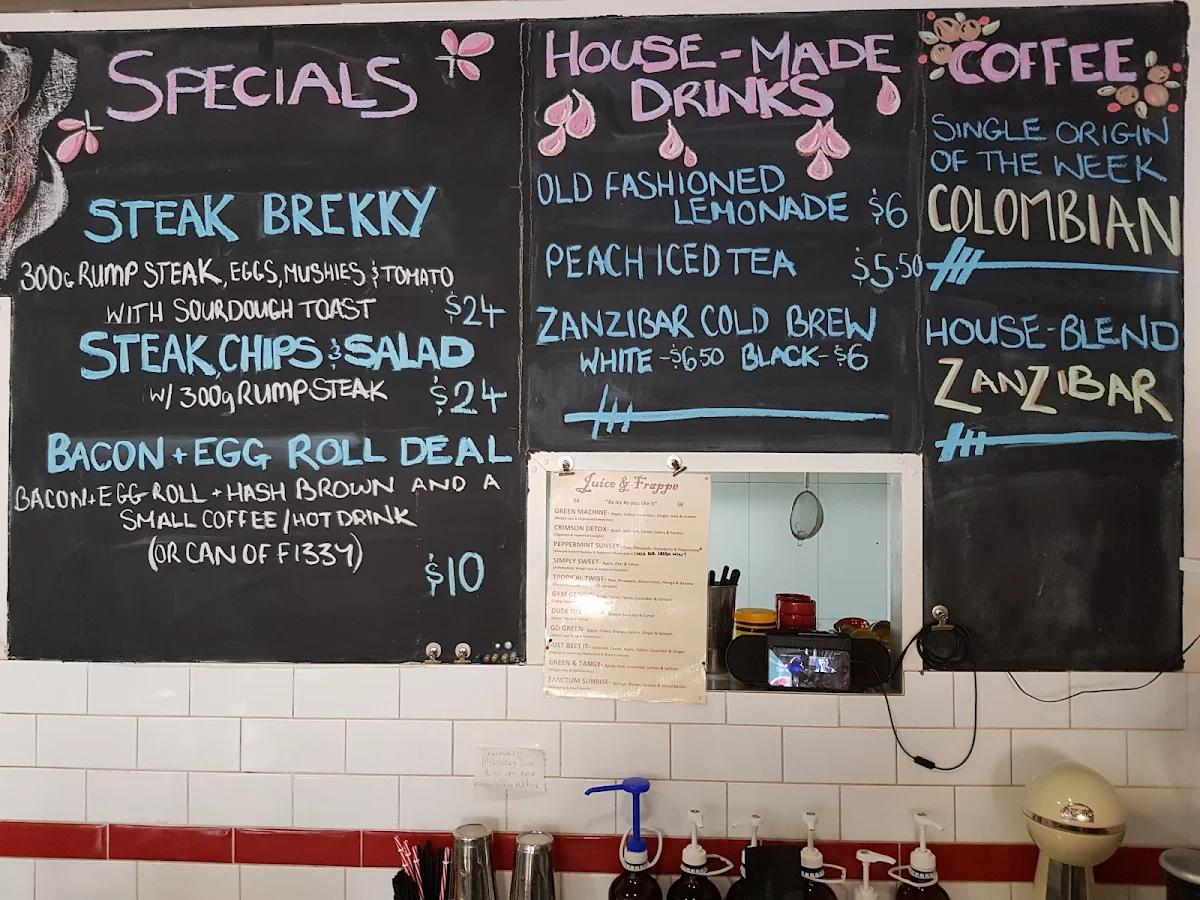 SPECIALS
STEAK BREKKY
300g RUMP STEAK, EGGS, MUSHIES & TOMATO
WITH SOURDOUGH TOAST $24
STEAK, CHIPS & SALAD
W/ 300g RUMP STEAK $24
BACON + EGG ROLL DEAL
BACON + EGG ROLL + HASH BROWN AND A
SMALL COFFEE / HOT DRINK
(OR CAN OF FIZZY)
$10
HOUSE-MADE
DRINKS
OLD FASHIONED
LEMONADE $6
PEACH ICED TEA $5.50
ZANZIBAR COLD BREW
WHITE - $6.50 BLACK - $6
COFFEE
SINGLE ORIGIN
OF THE WEEK
COLOMBIAN
HOUSE-BLEND
ZANZIBAR
Juice & Frappe
"As Icy As you like it"
GREEN MACHINE- Apple, Celery, Cucumber, Ginger, Kale & Lemon
CRIMSON DETOX-
PEPPERMINT SUNSET-
SIMPLY SWEET- Apple, Pear & Celery
TROPICAL TWIST- Pear, Pineapple, Watermelon, Mango & Banana
GYM
DUSK
GO GREEN- Apple, Celery, Orange, Lemon, Ginger & Spinach
JUST BEET IT- Beetroot, Carrot, Apple, Celery, Cucumber & Ginger
GREEN & TANGY- Apple, Kale, Cucumber, Lemon & Spinach
SANCTUM SUNRISE-